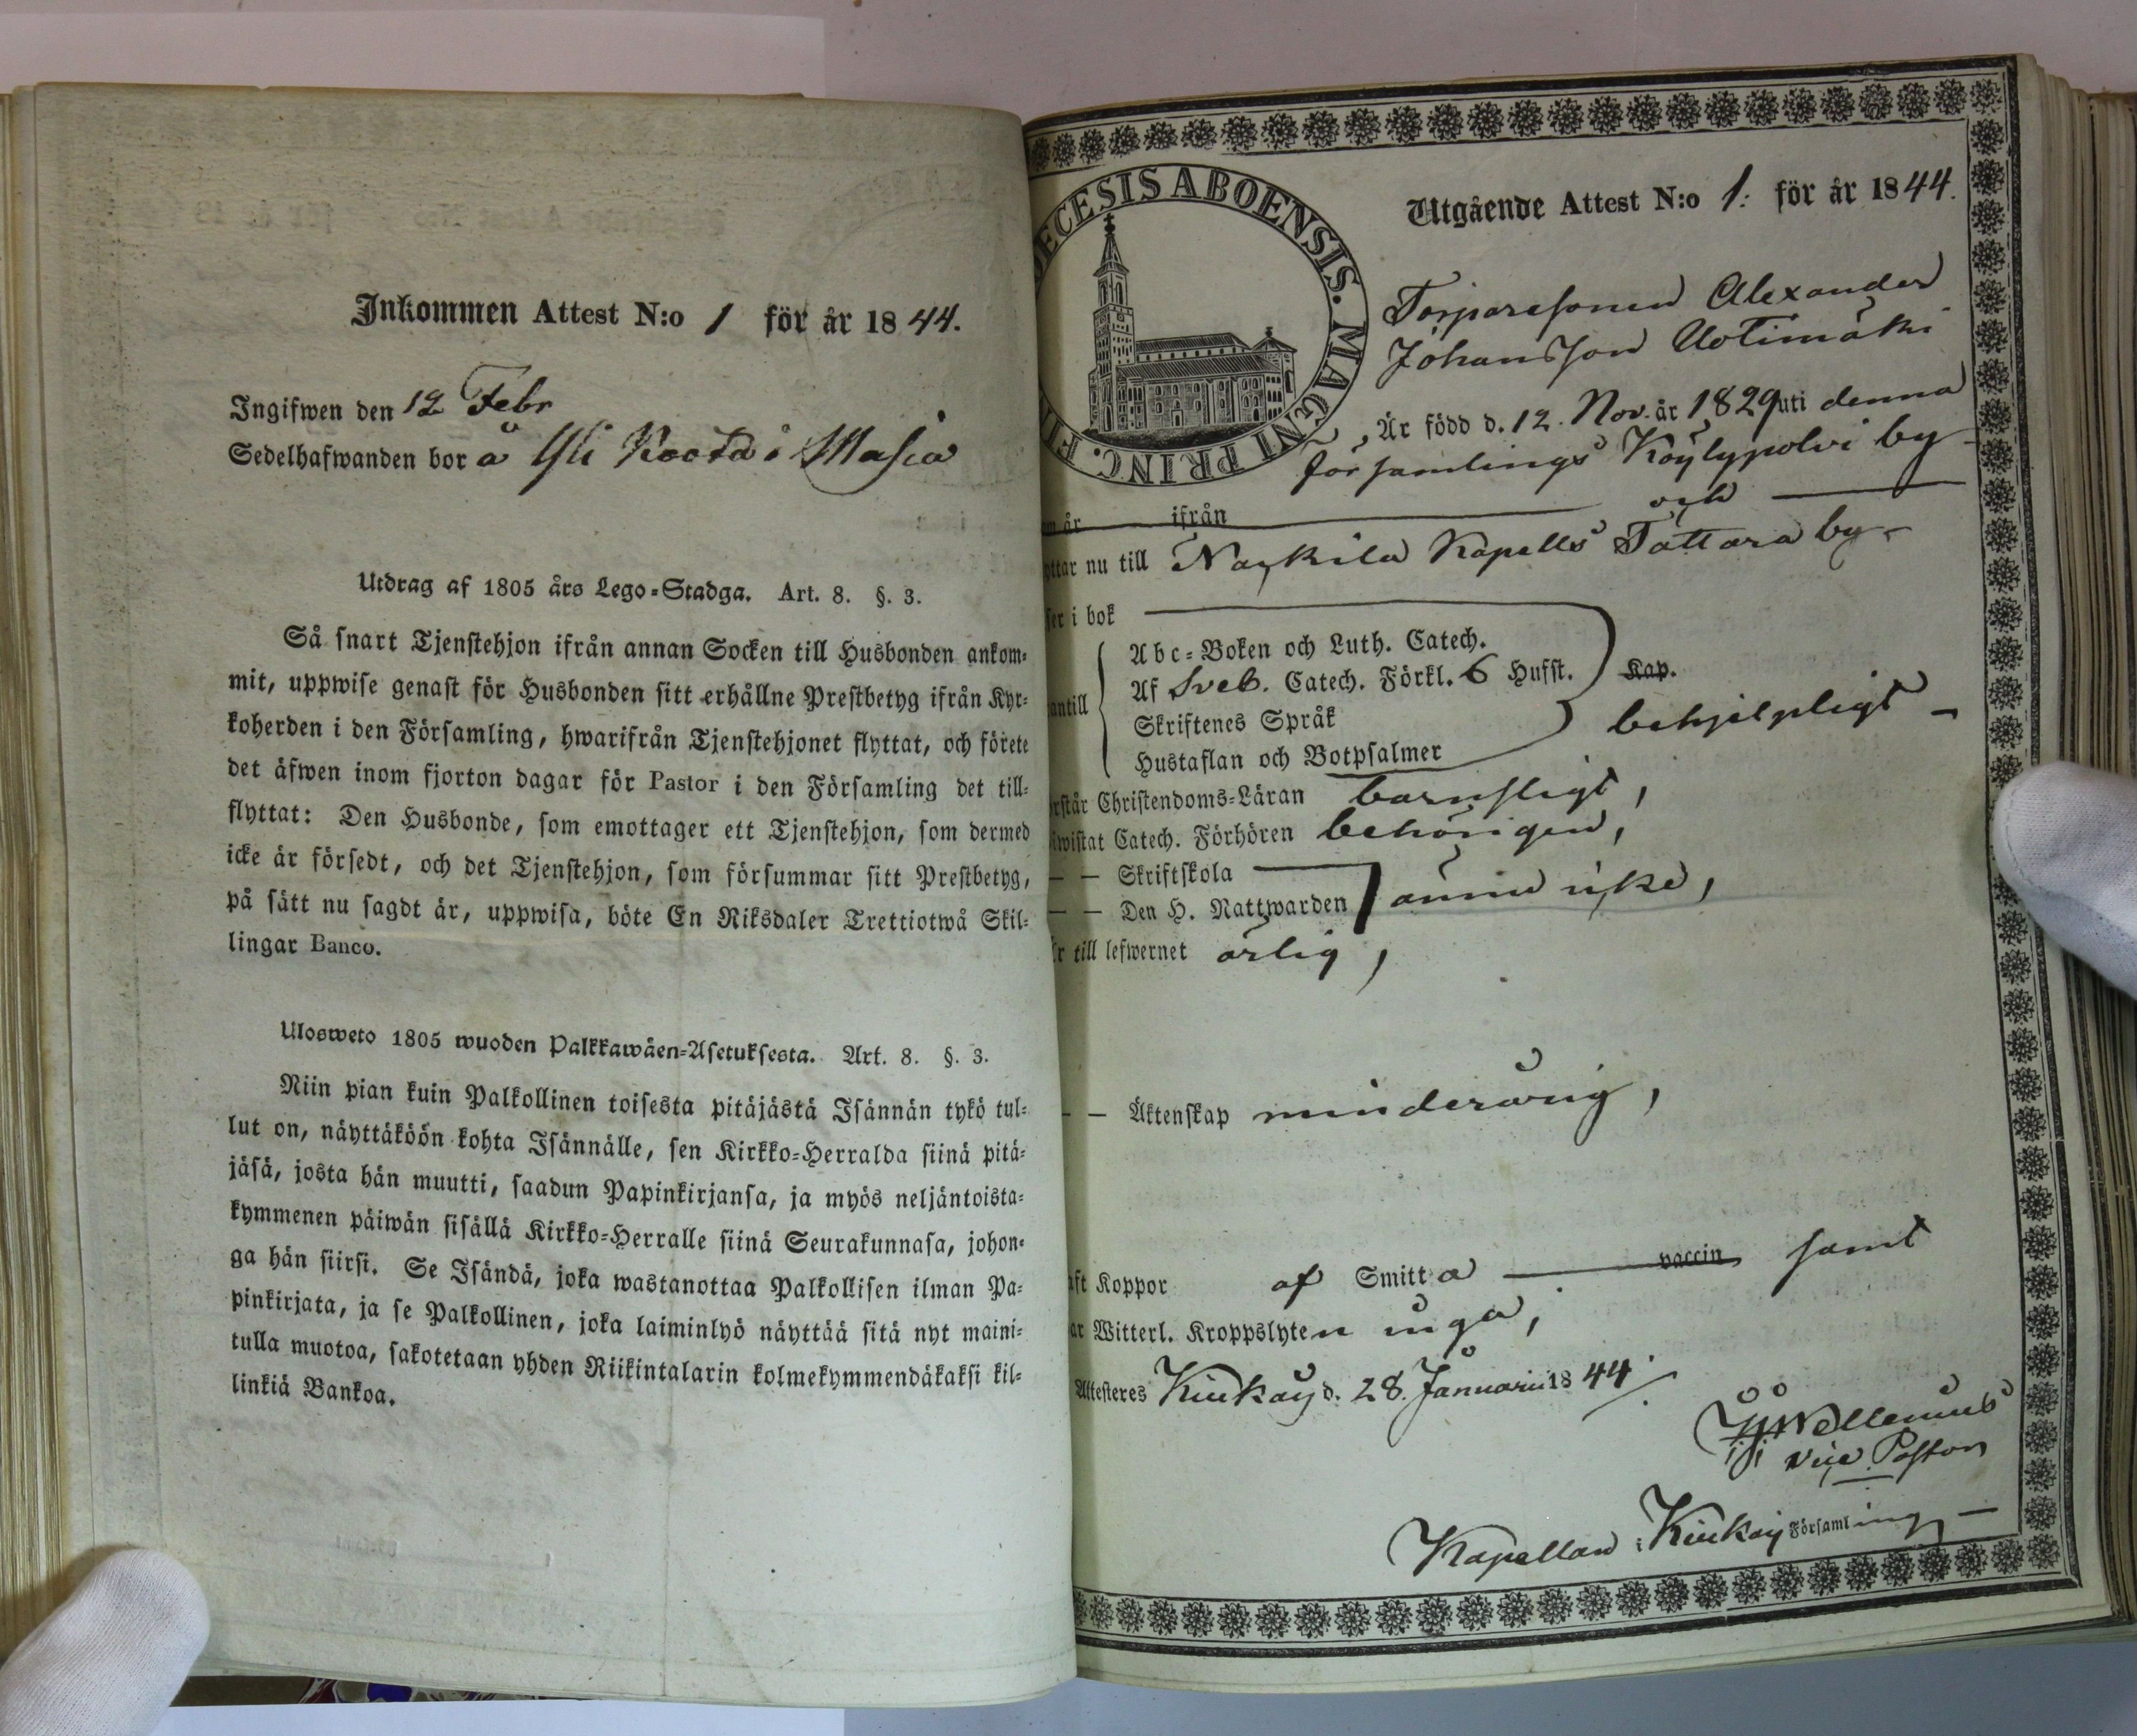 Inkommen Attest N:o 1 för år 1844.
Ingifwen den 12 Febr
Sedelhafwanden bor å Yli Roota i Masia
Utdrag af 1805 års Lego-Stadga. Art. 8. §. 3.
Så snart Tjenstehjon ifrån annan Socken till Husbonden ankom-
mit, uppwise genast för Husbonden sitt erhållne Prestbetyg ifrån Kyr-
koherden i den Församling, hwarifrån Tjenstehjonet flyttat, och förete
det äfwen inom fjorton dagar för Pastor i den Församling det till-
flyttat: Den Husbonde, som emottager ett Tjenstehjon, som dermed
icke är försedt, och det Tjenstehjon, som försummar sitt Prestbetyg,
på sätt nu sagdt är, uppwisa, böte En Riksdaler Trettiotwå Skil-
lingar Banco.
Ulosweto 1805 wuoden Palkkawäen-Asetuksesta. Art. 8. §. 3.
Niin pian kuin Palkollinen toisesta pitäjästä Isännän tykö tul-
lut on, näyttäköön kohta Isännälle, sen Kirkko-Herralda siinä pitä-
jäsä, josta hän muutti, saadun Papinkirjansa, ja myös neljäntoista-
kymmenen päiwän sisällä Kirkko-Herralle siinä Seurakunnasa, johon-
ga hän siirsi. Se Isändä, joka wastanottaa Palkollisen ilman Pa-
pinkirjata, ja se Palkollinen, joka laiminlyö näyttää sitä nyt maini-
tulla muotoa, sakotetaan yhden Riikintalarin kolmekymmendäkaksi kil-
linkiä Bankoa.
ECESIS ABOENSIS. MAGNI PRINC. FI
Utgående Attest N:o 1: för år 1844.
Torparesonen Alexander
Johansson Uotimäki
Är född d. 12. Nov. år 1829 uti denna
församlings Köylypolvi by
år ifrån och
ttar nu till Nackila Kapells Tattara by
ser i bok
Abc-Boken och Luth. Catech.
Af Sveb. Catech. Förkl. 6 Hufst. Kap.
antill
Skriftenes Språk behjelpligt
Hustaflan och Botpsalmer
rstår Christendoms-Läran barnsligt,
iwistat Catech. Förhören behörigen,
— — Skriftskola
— — Den H. Nattwarden ännu icke,
r till lefwernet ärlig,
— — Äktenskap minderårig,
aft Koppor af Smitta vaccin samt
ar Witterl. Kroppslyten inga,
Attesteres Kiukais d. 28. Januarii 1844
Wellenius
vice Pastor
Kapellan i Kiukais Församling